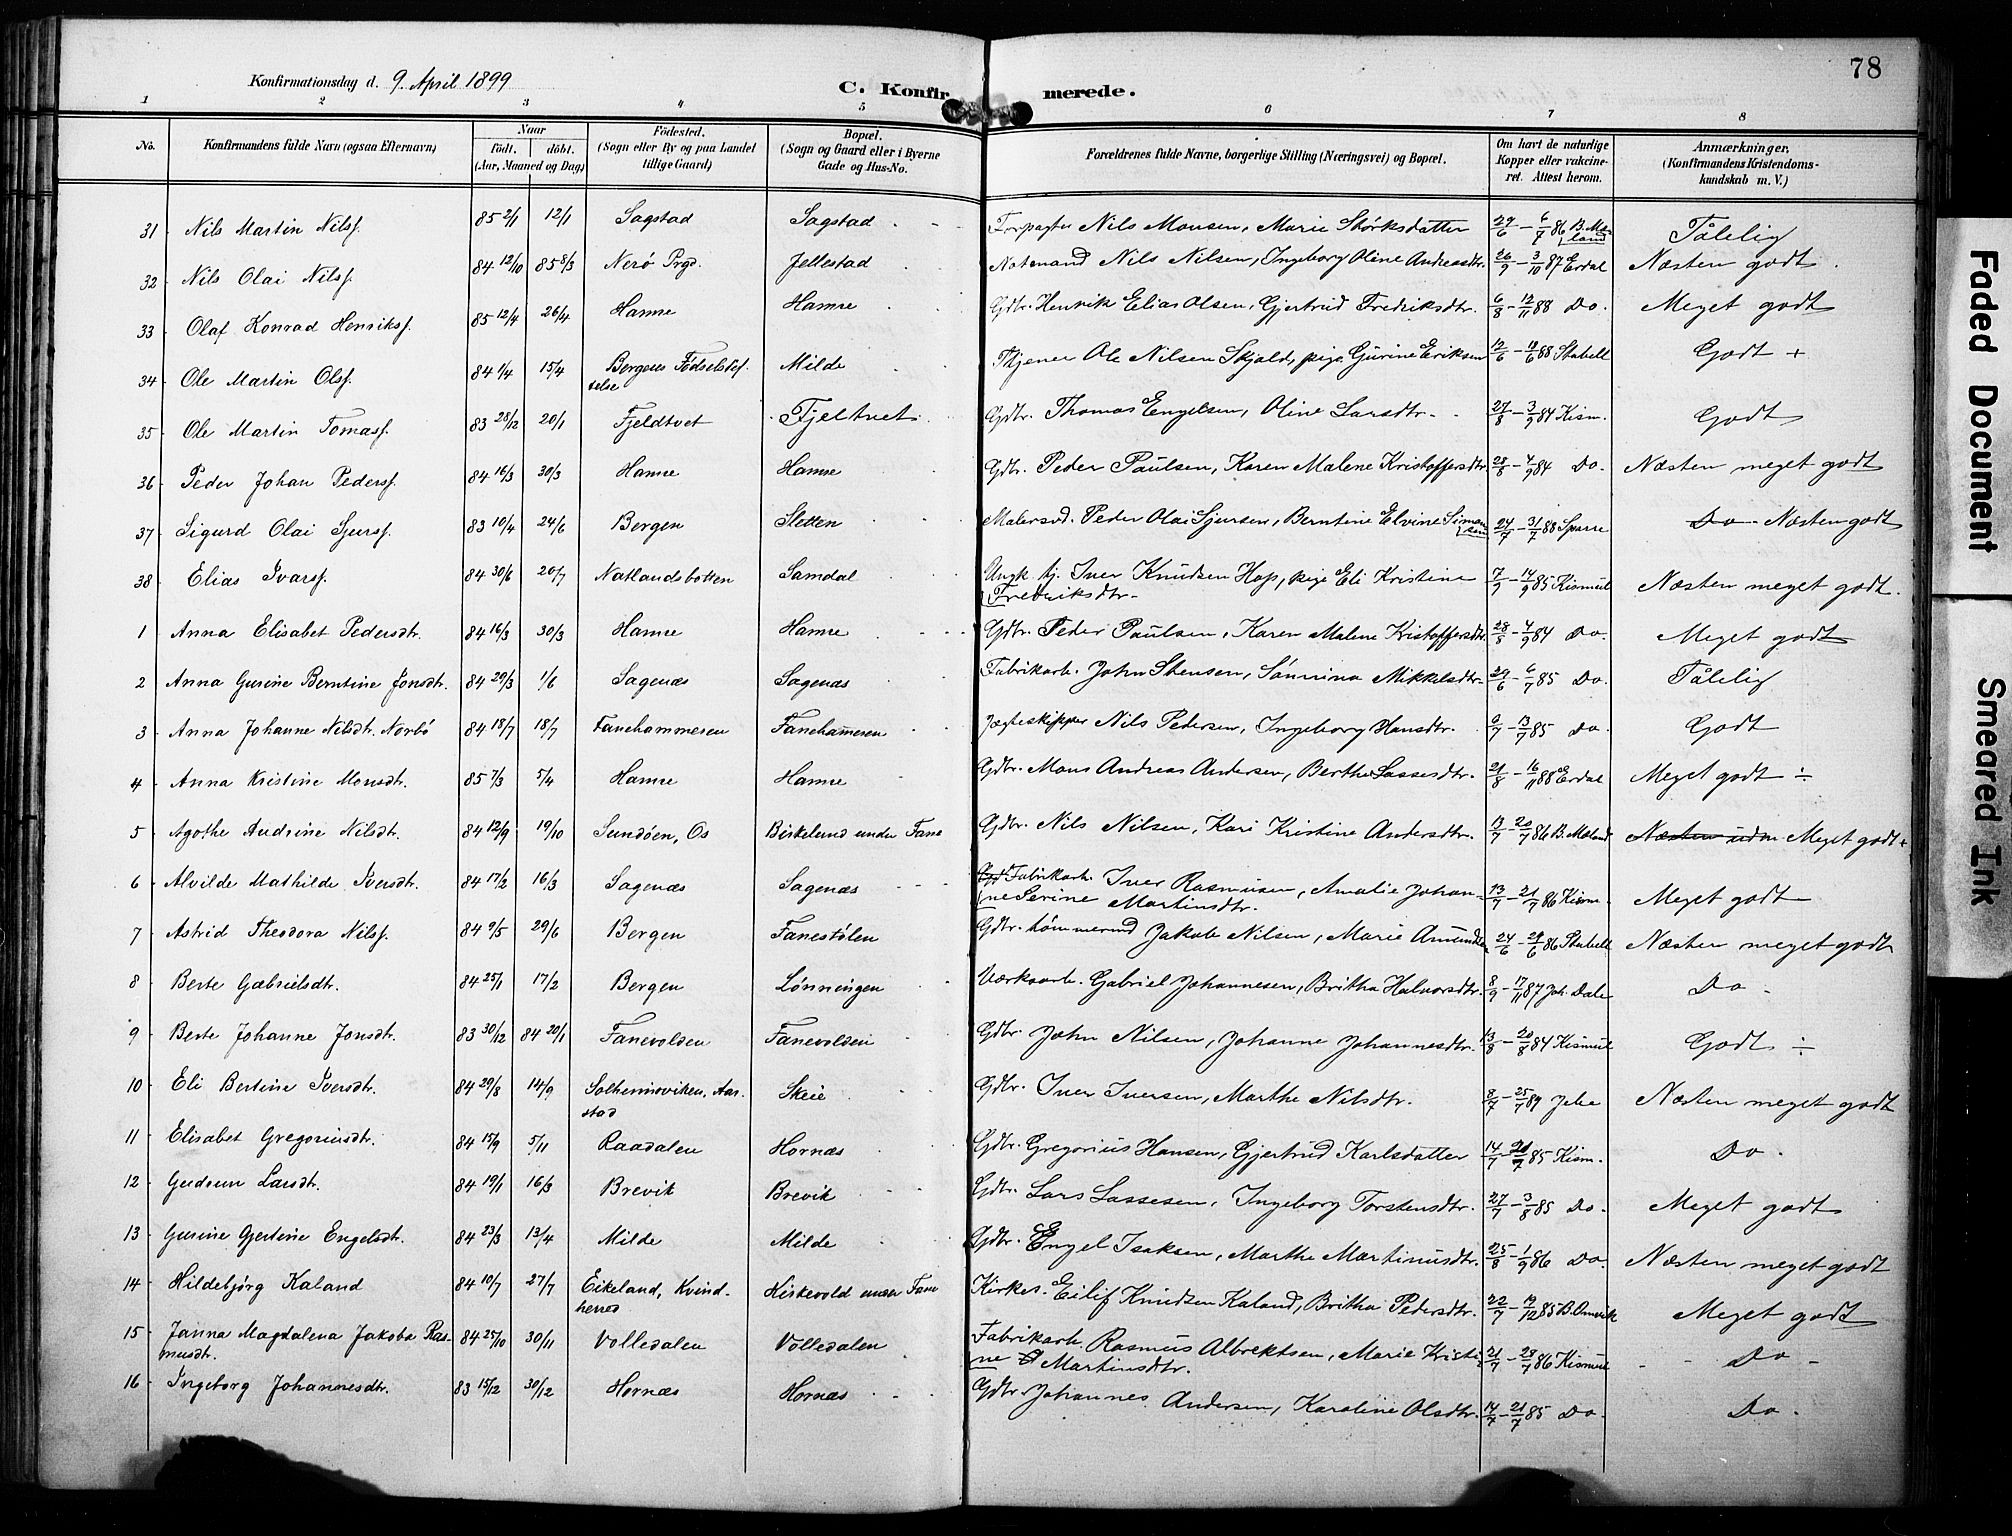 78
Konfirmationsdag d. 9. April 1899
C. Konfirmerede.
1 2 3 4 5 6 7 8
No. Konfirmandens fulde Navn (ogsaa Efternavn) Naar født. døbt. (Aar, Maaned og Dag) Fødested. (Sogn eller By og paa Landet tillige Gaard) Bopæl. (Sogn og Gaard eller i Byerne Gade og Hus-No. Forældrenes fulde Navne, borgerlige Stilling (Næringsvei) og Bopæl. Om havt de naturlige Kopper eller vakcineret. Attest herom. Anmærkninger. (Konfirmandens Kristendomskundskab m. V.)
31 Nils Martin Nilsf. 85 2/1 12/1 Sagstad Sagstad Forpagter Nils Monsen, Marie Størksdatter 29/6 - 6/7 86 B. Mæland Tålelig
32 Nils Olai Nilsf. 84 12/10 85 8/3 Nerø Prgd. Jellestad Notemand Nils Nilsen, Ingeborg Oline Andreasdtr. 26/9 - 3/10 87 Erdal Næsten godt
33 Olaf Konrad Henriksf. 85 12/4 26/4 Hamre Hamre Gdbr. Henrik Elias Olsen, Gjertrud Fredriksdtr. 6/8 - 12/11 88 Do. Meget godt
34 Ole Martin Olsf. 84 1/4 15/4 Bergens Fødselsstiftelse Milde Tjener Ole Nilsen Skjold, pige Gurine Eriksen 12/6 - 19/6 88 Stabell Godt +
35 Ole Martin Tomasf. 83 28/12 20/1 Fjeldtvet Fjeltvet Gdbr. Thomas Engelsen, Oline Larsdtr. 27/8 - 3/9 84 Kism. Godt
36 Peder Johan Pedersf. 84 16/3 30/3 Hamre Hamre Gdbr. Peder Paulsen, Karen Malene Kristoffersdtr. 28/8 - 4/9 84 Do. Næsten meget godt
37 Sigurd Olai Sjursf. 83 10/4 24/6 Bergen Sletten Malersvd. Peder Olai Sjursen, Berntine Elvine Simonsen 24/7 - 31/7 88 Sparre Do Næsten godt
38 Elias Ivarsf. 84 30/6 20/7 Natlandsbotten Samdal Ungk. tj. Iver Knudsen Hop, pige Eli Kristine Fredriksdtr. 7/9 - 14/9 85 Kismul Næsten meget godt.
1 Anna Elisabet Pedersdtr. 84 16/3 30/3 Hamre Hamre Gdbr. Peder Paulsen, Karen Malene Kristoffersdtr. 28/8 - 4/9 84 Do. Meget godt
2 Anna Gurine Berntine Jonsdtr. 84 29/3 1/6 Sagenæs Sagenæs Fabrikarb. John Stensen, Sønnina Mikkelsdtr. 29/6 - 6/7 85 Do. Tålelig
3 Anna Johanne Nilsdtr. Norbø 84 18/7 18/7 Fanehammeren Fanehameren Jægteskipper Nils Pedersen, Ingeborg Hansdtr. 6/7 - 13/7 85 Do. Godt
4 Anna Kristine Monsdtr. 85 7/3 5/4 Hamre Hamre Gdbr. Mons Andreas Andersen, Berthe Lassesdtr. 21/8 - 16/11 88 Erdal Meget godt ÷
5 Agothe Andrine Nilsdtr. 84 12/9 19/10 Sundøen, Os Birkelund under Fane Gdbr. Nils Nilsen, Kari Kristine Andersdtr. 13/7 - 20/7 86 B. Mæland Næsten udm Meget godt +
6 Alvilde Mathilde Iversdtr. 84 17/2 16/3 Sagenæs Sagenæs Fabrikarb. Iver Rasmusen, Amalie Johanne Serine Martinsdtr. 13/7 - 21/7 86 Kism. Meget godt
7 Astrid Theodora Nilsf. 84 9/5 29/6 Bergen Fanestølen Gdbr. tømmermd Jakob Nilsen, Marie Amundsen 24/6 - 29/6 86 Stabell Næsten meget godt
8 Berte Gabrielsdtr. 84 25/1 17/2 Bergen Lønningen Værksarb. Gabriel Johannesen, Britha Halvorsdtr. 8/9 - 17/11 87 Joh. Dale Do
9 Berte Johanne Jonsdtr. 83 30/12 84 20/1 Fanevolden Fanevolden Gdbr. John Nilsen, Johanne Johannesdtr. 13/8 - 20/8 84 Kismul Godt ÷
10 Eli Bertine Iversdtr. 84 29/8 14/9 Solheimsviken, Aarstad Skeie Gdbr. Iver Iversen, Marthe Nilsdtr. 8/7 - 25/7 89 Næsten meget godt
11 Elisabet Gregoriusdtr. 84 15/9 5/11 Raadalen Hornæs Gdbr. Gregorius Hansen, Gjertrud Karlsdatter 14/7 - 21/7 85 Kism. Do.
12 Gudrun Larsdtr. 84 19/1 16/3 Brevik Brevik Gdbr. Lars Lassesen, Ingeborg Torstensdtr. 27/7 - 3/8 85 Do. Meget godt
13 Gurine Gjertine Engelsdtr. 84 23/3 13/4 Milde Milde Gdbr. Engel Isaksen, Marthe Martinusdtr. 25/8 - 1/9 86 Do. Næsten meget godt
14 Hildebjørg Kaland 84 10/7 27/7 Eikeland, Kvindherred Kirkevold under Fane Kirkes. Eilif Knudsen Kaland, Britha Pedersdtr. 22/7 - 19/12 85 B. Omvik Meget godt
15 Janna Magdalena Jakoba Rasmusdtr. 84 25/10 30/11 Volledalen Volledalen Fabrikarb. Rasmus Albrektsen, Marie Kristine Martinsdtr. 21/7 - 28/7 86 Kismul Do
16 Ingeborg Johannesdtr. 83 15/12 30/12 Hornæs Hornæs Gdbr. Johannes Andersen, Karoline Olsdtr. 14/7 - 21/7 85 Do. Do.
Faded Document
Smeared Ink